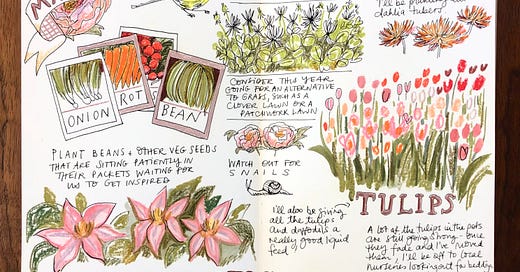 MA
ONION
ROT
BEAN
PLANT BEANS + OTHER VEG SEEDS
THAT ARE SITTING PATIENTLY IN
THEIR PACKETS WAITING FOR
US TO GET INSPIRED
CONSIDER THIS YEAR
GOING FOR AN ALTERNATIVE
TO GRASS, SUCH AS A
CLOVER LAWN OR A
PATCHWORK LAWN
WATCH OUT FOR
SNAILS
I'll also be giving
all the tulips
and daffodils a
really good liquid
feed
I'll be
dahlia tubers
TULIPS
A lot of the tulips in the pots
are still going strong - once
they fade and I've
them, I'll be off to local
nurseries looking out for bedding